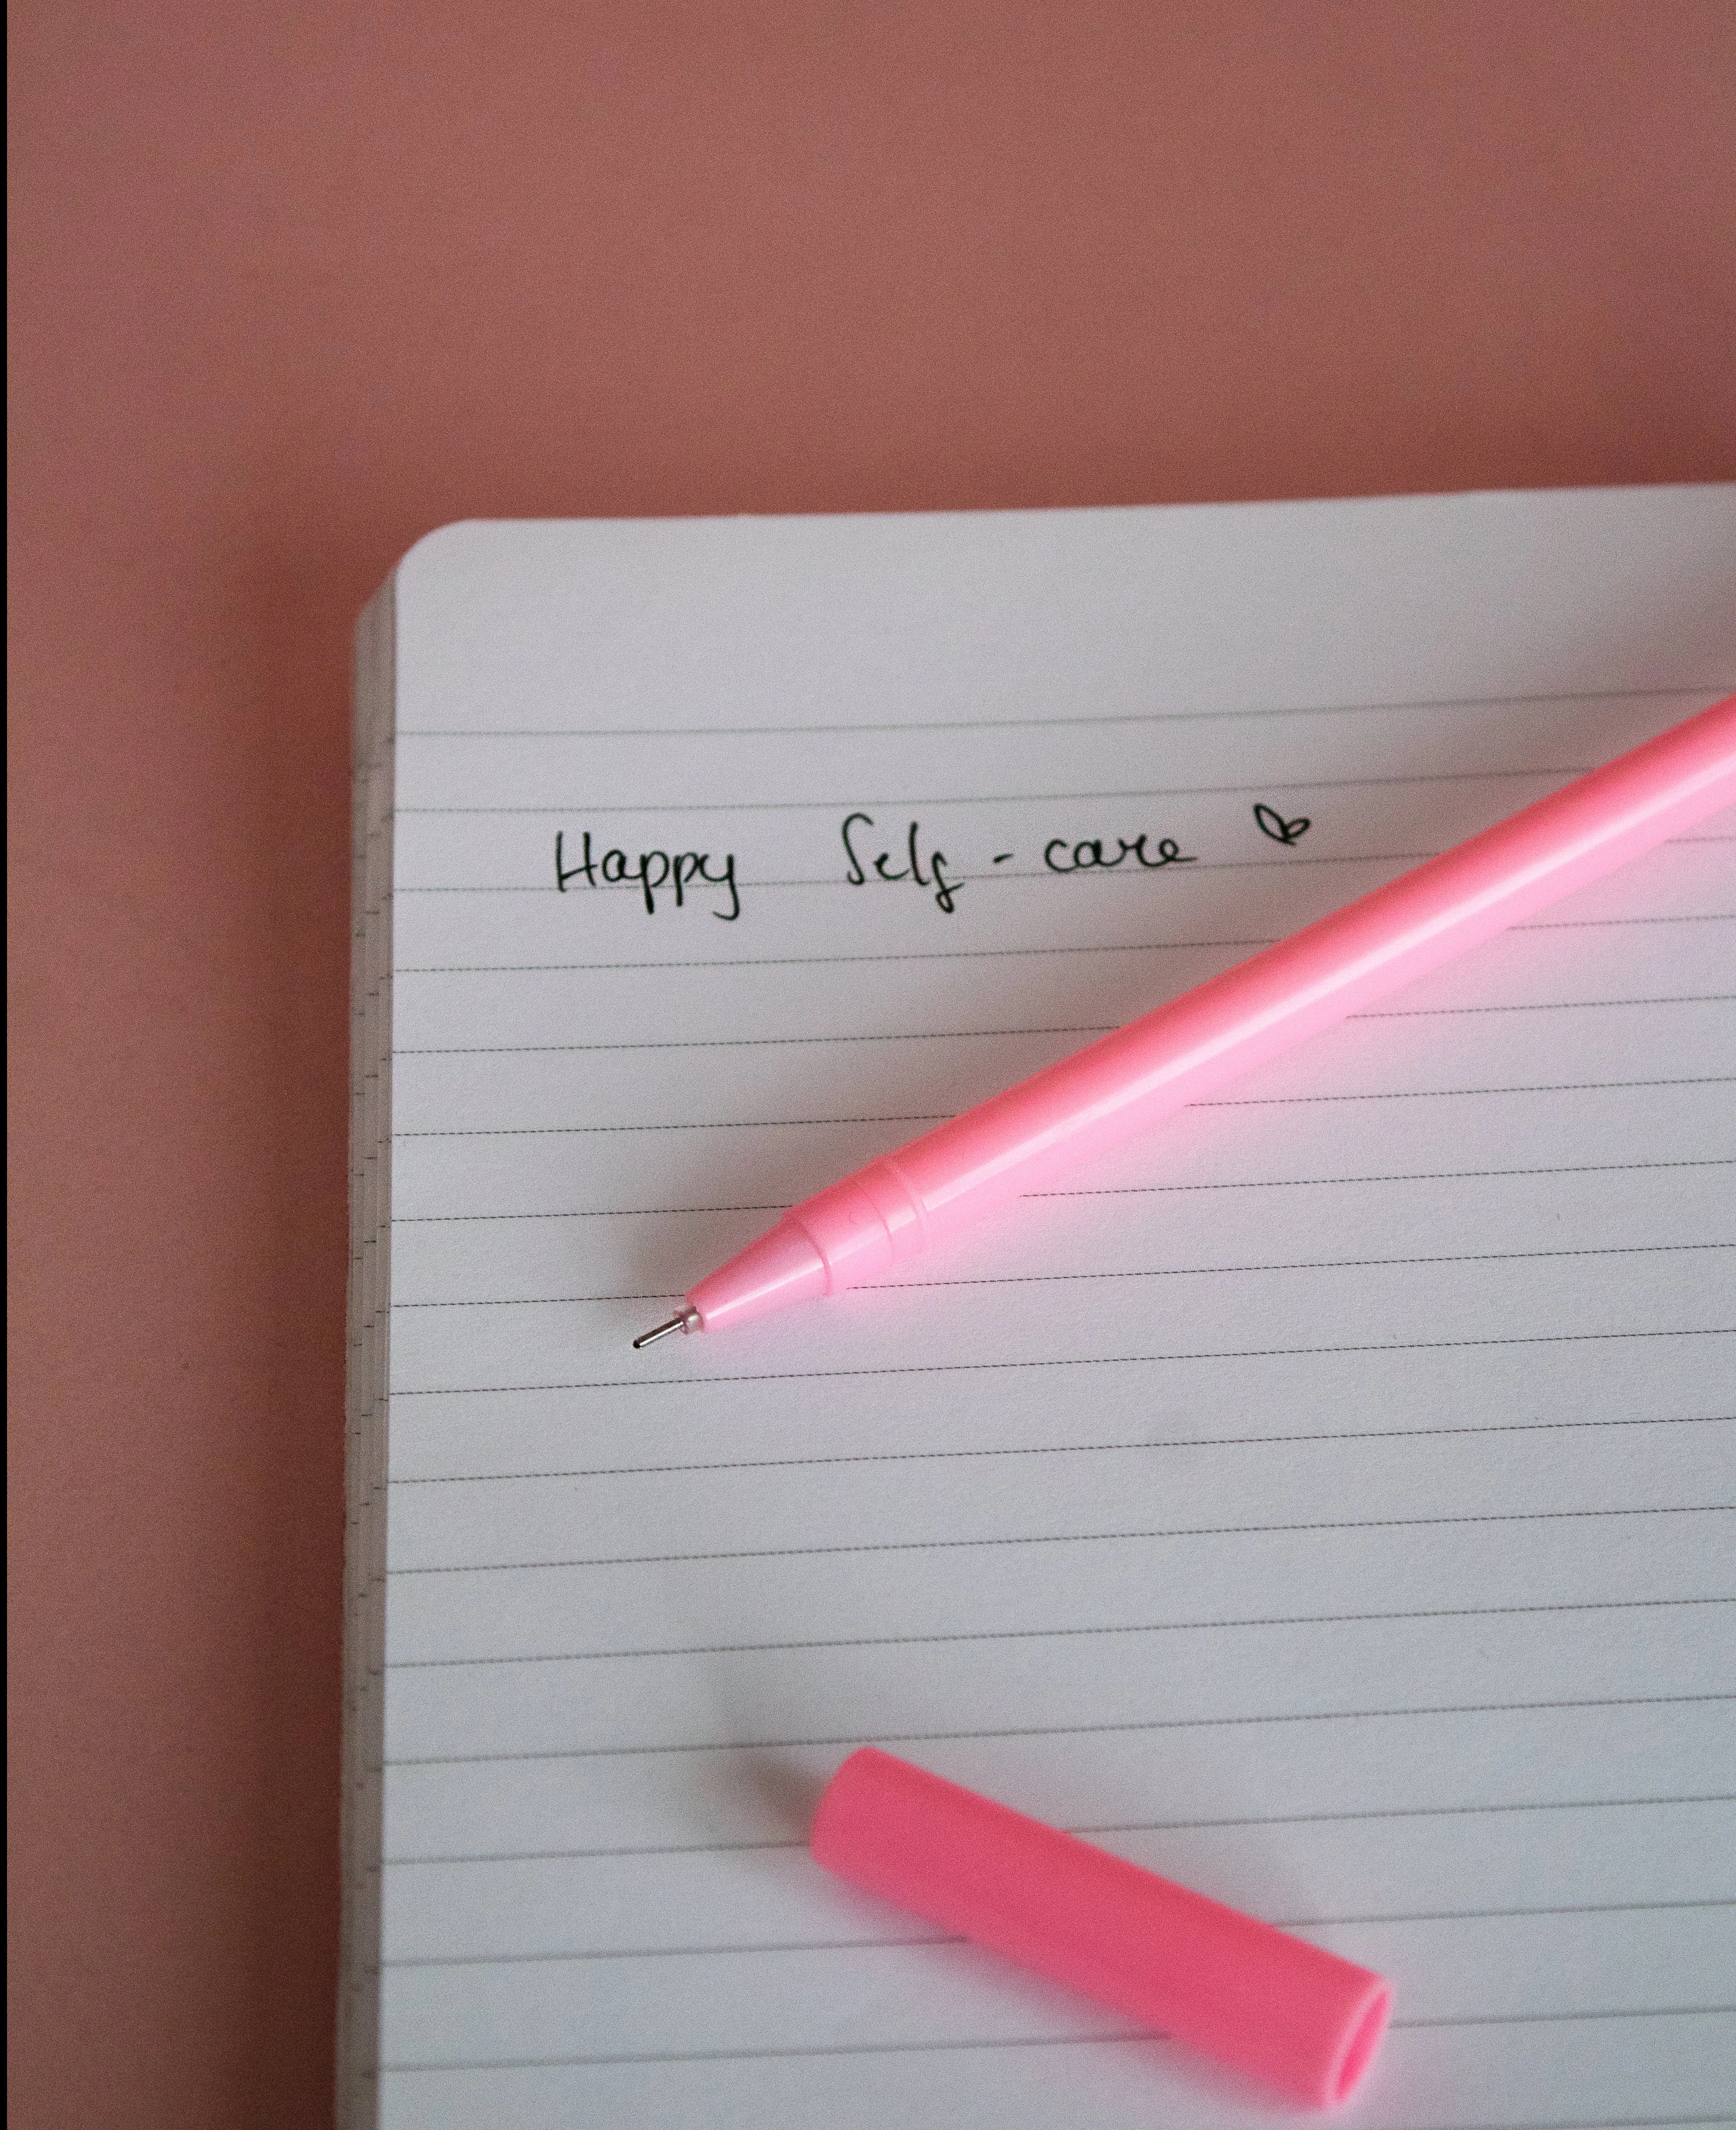 Happy Self-care ♡